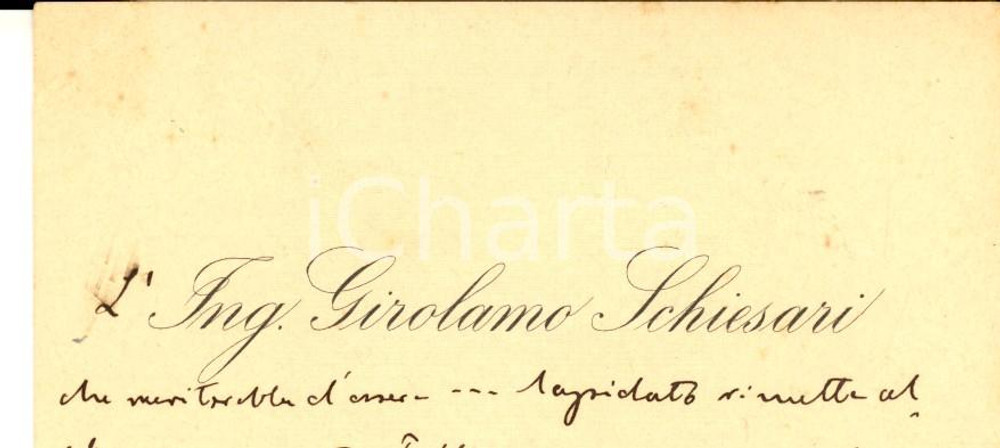 iCharta
L' Ing. Girolamo Schiesari
che meriterebbe d'essere --- lapidato rimette al